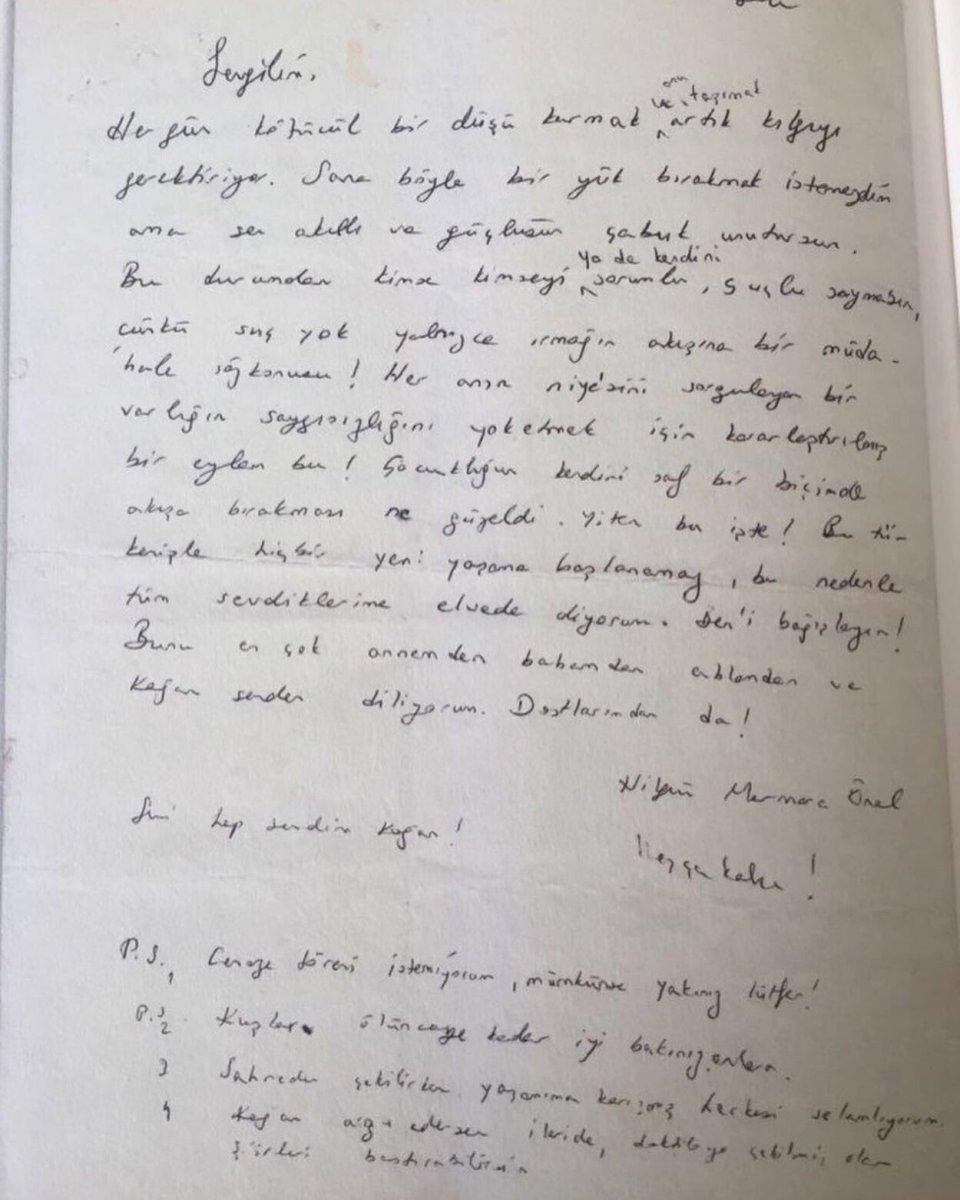 Sevgilim,
Her gün kötücül bir düşü kurmak ve onu taşımak artık kılgıyı
gerektiriyor. Sana böyle bir yük bırakmak istemezdim
ama sen akıllı ve güçlüsün çabuk unutursun.
Bu durumdan kimse kimseyi ya da kendini sorumlu, suçlu saymasın,
çünkü suç yok yalnızca ırmağın akışına bir müda-
hale sözkonusu! Her anın niye'sini sorgulayan bir
varlığın saygısızlığını yoketmek için kararlaştırılmış
bir eylem bu! Çocukluğun kendini saf bir biçimde
akışa bırakması ne güzeldi. Yiten bu işte! Bu tü-
kenişle hiçbir yeni yaşama başlanamaz, bu nedenle
tüm sevdiklerime elveda diyorum. Ben'i bağışlayın!
Bunu en çok annemden babamdan ablamdan ve
Kağan senden diliyorum. Dostlarımdan da!
Nilgün Marmara Önal
hep sendin Kağan!
Hoşça kalın!
P.S.1 Cenaze töreni istemiyorum, mümkünse yakınız lütfen!
P.S.2 Kuşlar ölünceye kadar iyi bakınız onlara.
3 Sahneden çekilirken yaşamıma karışmış herkesi selamlıyorum.
4 Kağan arzu edersen ileride, daktiloya çekilmiş olan
şiirleri bastırabilirsin